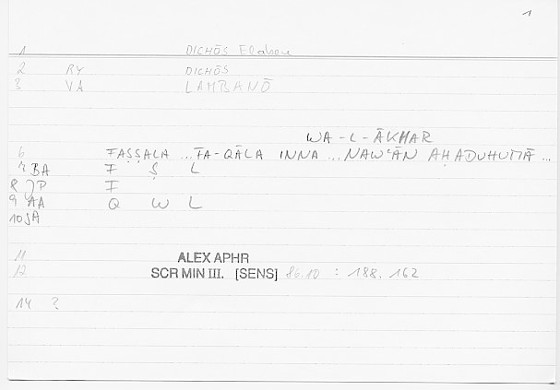 1
1 DICHŌS Elabon
2 RY DICHŌS
3 VA LAMBANŌ
WA-L-ĀKHAR
6 FAṢṢALA ... FA-QĀLA INNA ... NAWʿĀN AḤADUHUMĀ ...
7 BA F Ṣ L
8 JP F
9 AA Q W L
10 JA
11 ALEX APHR
12 SCR MIN III. [SENS] 86.10 : 188, 162
14 ?